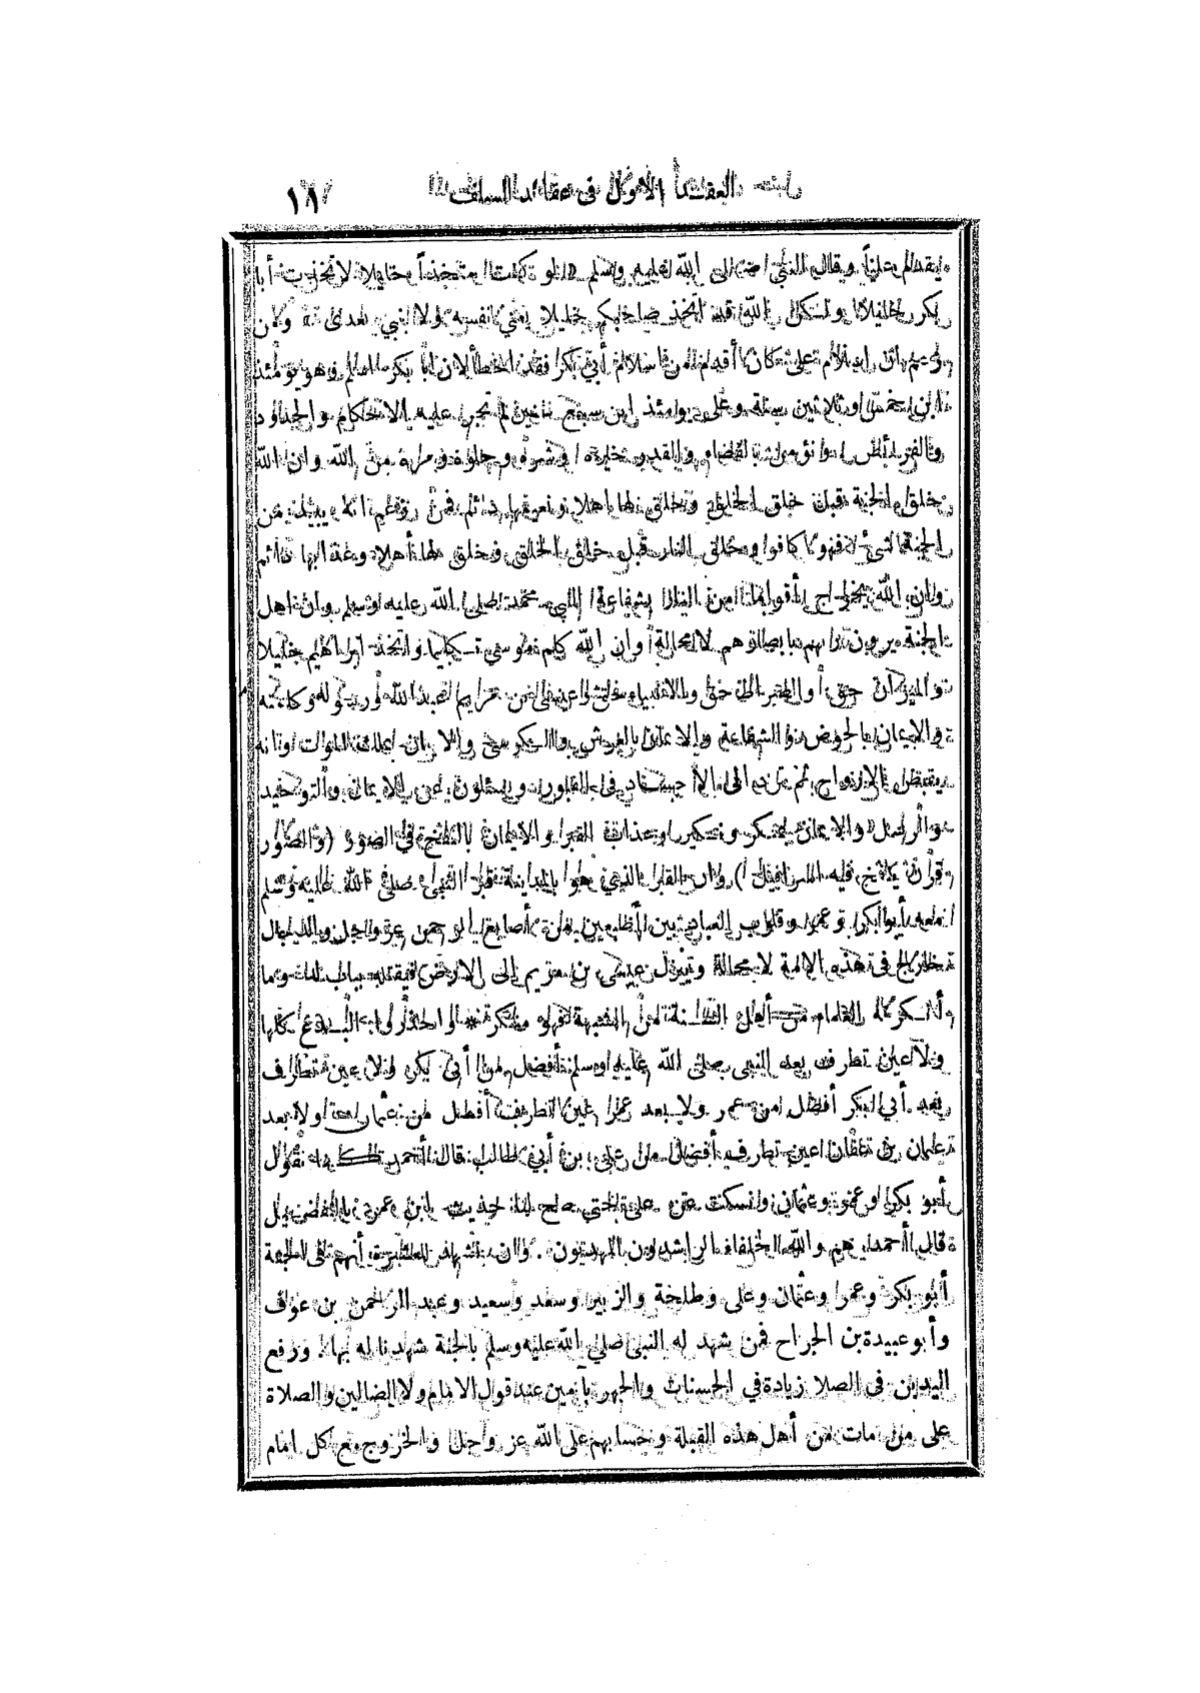 العقد الأول في عقائد السلف
١٨٧
وقال النبي صلى الله عليه وسلم لو كنت متخذاً خليلا لاتخذت أبا
بكر خليلا ولكن الله قد اتخذ صاحبكم خليلا يعني نفسه ولا نبي بعدي
زعم ان اسلام علي كان أقدم من اسلام أبي بكر فقد اخطأ لان أبا بكر اسلم وهو يومئذ
ابن خمس وثلاثين سنة وعلي يومئذ ابن سبع سنين لم تجر عليه الاحكام والحدود
والفرائض ونؤمن بالقضاء والقدر خيره وشره وحلوه ومره من الله وان الله
خلق الجنة قبل خلق الخلق وخلق لها اهلا ونعيمها دائم فمن زعم انه يبيد من
الجنة شيء فهو كافر وخلق النار قبل خلق الخلق وخلق لها أهلا وعذابها دائم
وان الله يخرج أقواما من النار بشفاعة محمد صلى الله عليه وسلم وان اهل
الجنة يرون ربهم بابصارهم لا محالة وان الله كلم موسى تكليما واتخذ ابراهيم خليلا
والميزان حق والصراط حق والانبياء حق وعيسى بن مريم عبد الله ورسوله وكلمته
والايمان بالحوض والشفاعة والايمان بالعرش والكرسي والايمان بملك الموت انه
يقبض الارواح ثم ترد الى الأجساد في القبور ويسئلون عن الايمان والتوحيد
والرسل والايمان بمنكر ونكير وعذاب القبر والايمان بالنفخ في الصور (والصور
قرن ينفخ فيه اسرافيل) وان القبر الذي هو بالمدينة قبر النبي صلى الله عليه وسلم
معه أبو بكر وعمر وقلوب العباد بين أصبعين من أصابع الرحمن عز وجل والدجال
خارج في هذه الامة لا محالة وينزل عيسى بن مريم الى الارض فيقتله بباب لد وما
أنكره العلماء من أهل السنة من الشبهة فهو منكر واحذروا البدع كلها
ولا عين تطرف بعد النبي صلى الله عليه وسلم أفضل من أبي بكر ولا عين تطرف
بعد أبي بكر أفضل من عمر ولا بعد عمر عين تطرف أفضل من عثمان ولا بعد
عثمان بن عفان عين تطرف أفضل من علي بن أبي طالب قال أحمد نقول
أبو بكر وعمر وعثمان ونسكت عن علي حتى صح لنا حديث ابن عمر بالتفضيل
قال أحمد هم والله الخلفاء الراشدون المهديون. وان نشهد للعشرة أنهم في الجنة
أبو بكر وعمر وعثمان وعلي وطلحة والزبير وسعد وسعيد وعبد الرحمن بن عوف
وأبو عبيدة بن الجراح فمن شهد له النبي صلى الله عليه وسلم بالجنة شهدنا له بها. ورفع
اليدين في الصلا زيادة في الحسنات والجهر بآمين عند قول الامام ولا الضالين والصلاة
على من مات من أهل هذه القبلة وحسابهم على الله عز وجل والخروج مع كل امام